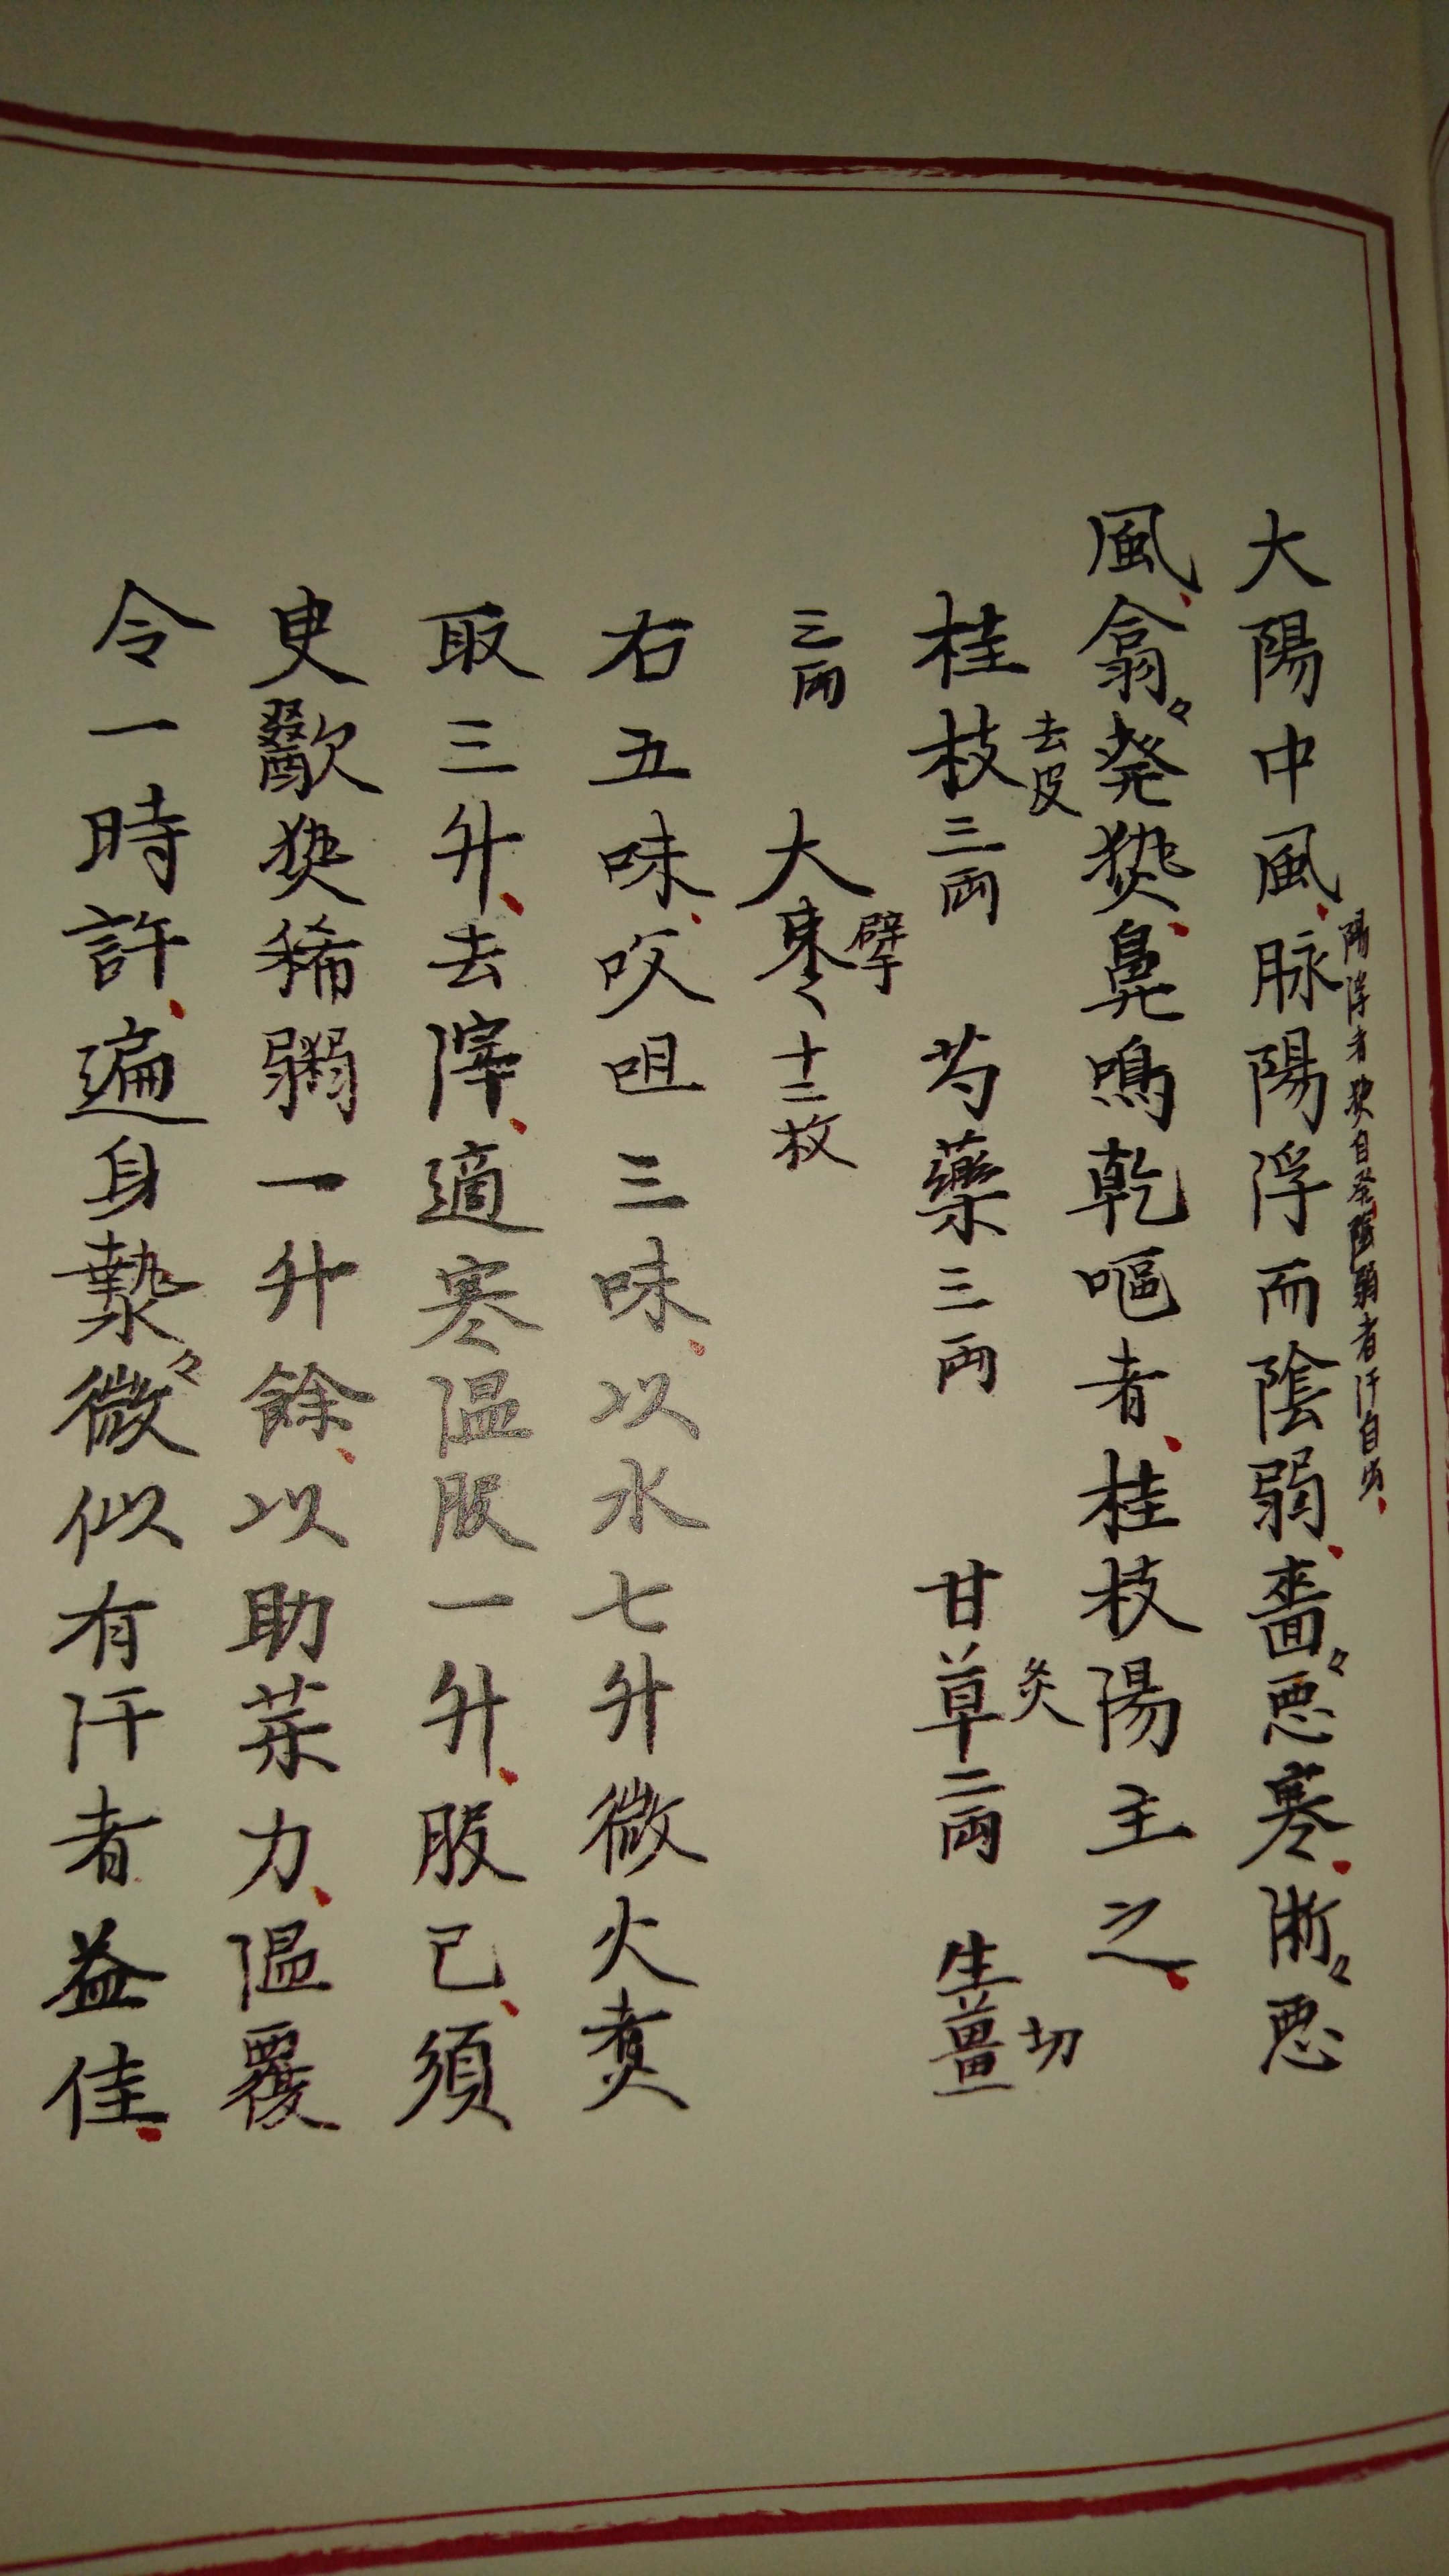 大陽中風脉陽浮而陰弱嗇々惡寒淅々惡
陽浮者𤍠自發陰弱者汗自出
風翕々發𤍠鼻鳴乾嘔者桂枝陽主之
桂枝去皮三兩 芍藥三兩 甘草炙二兩 生薑切
三兩 大棗擘十二枚
右五味㕮咀三味以水七升微火煮
取三升去滓適寒温服一升服已須
臾歠𤍠稀粥一升餘以助藥力温覆
令一時許遍身漐々微似有汗者益佳